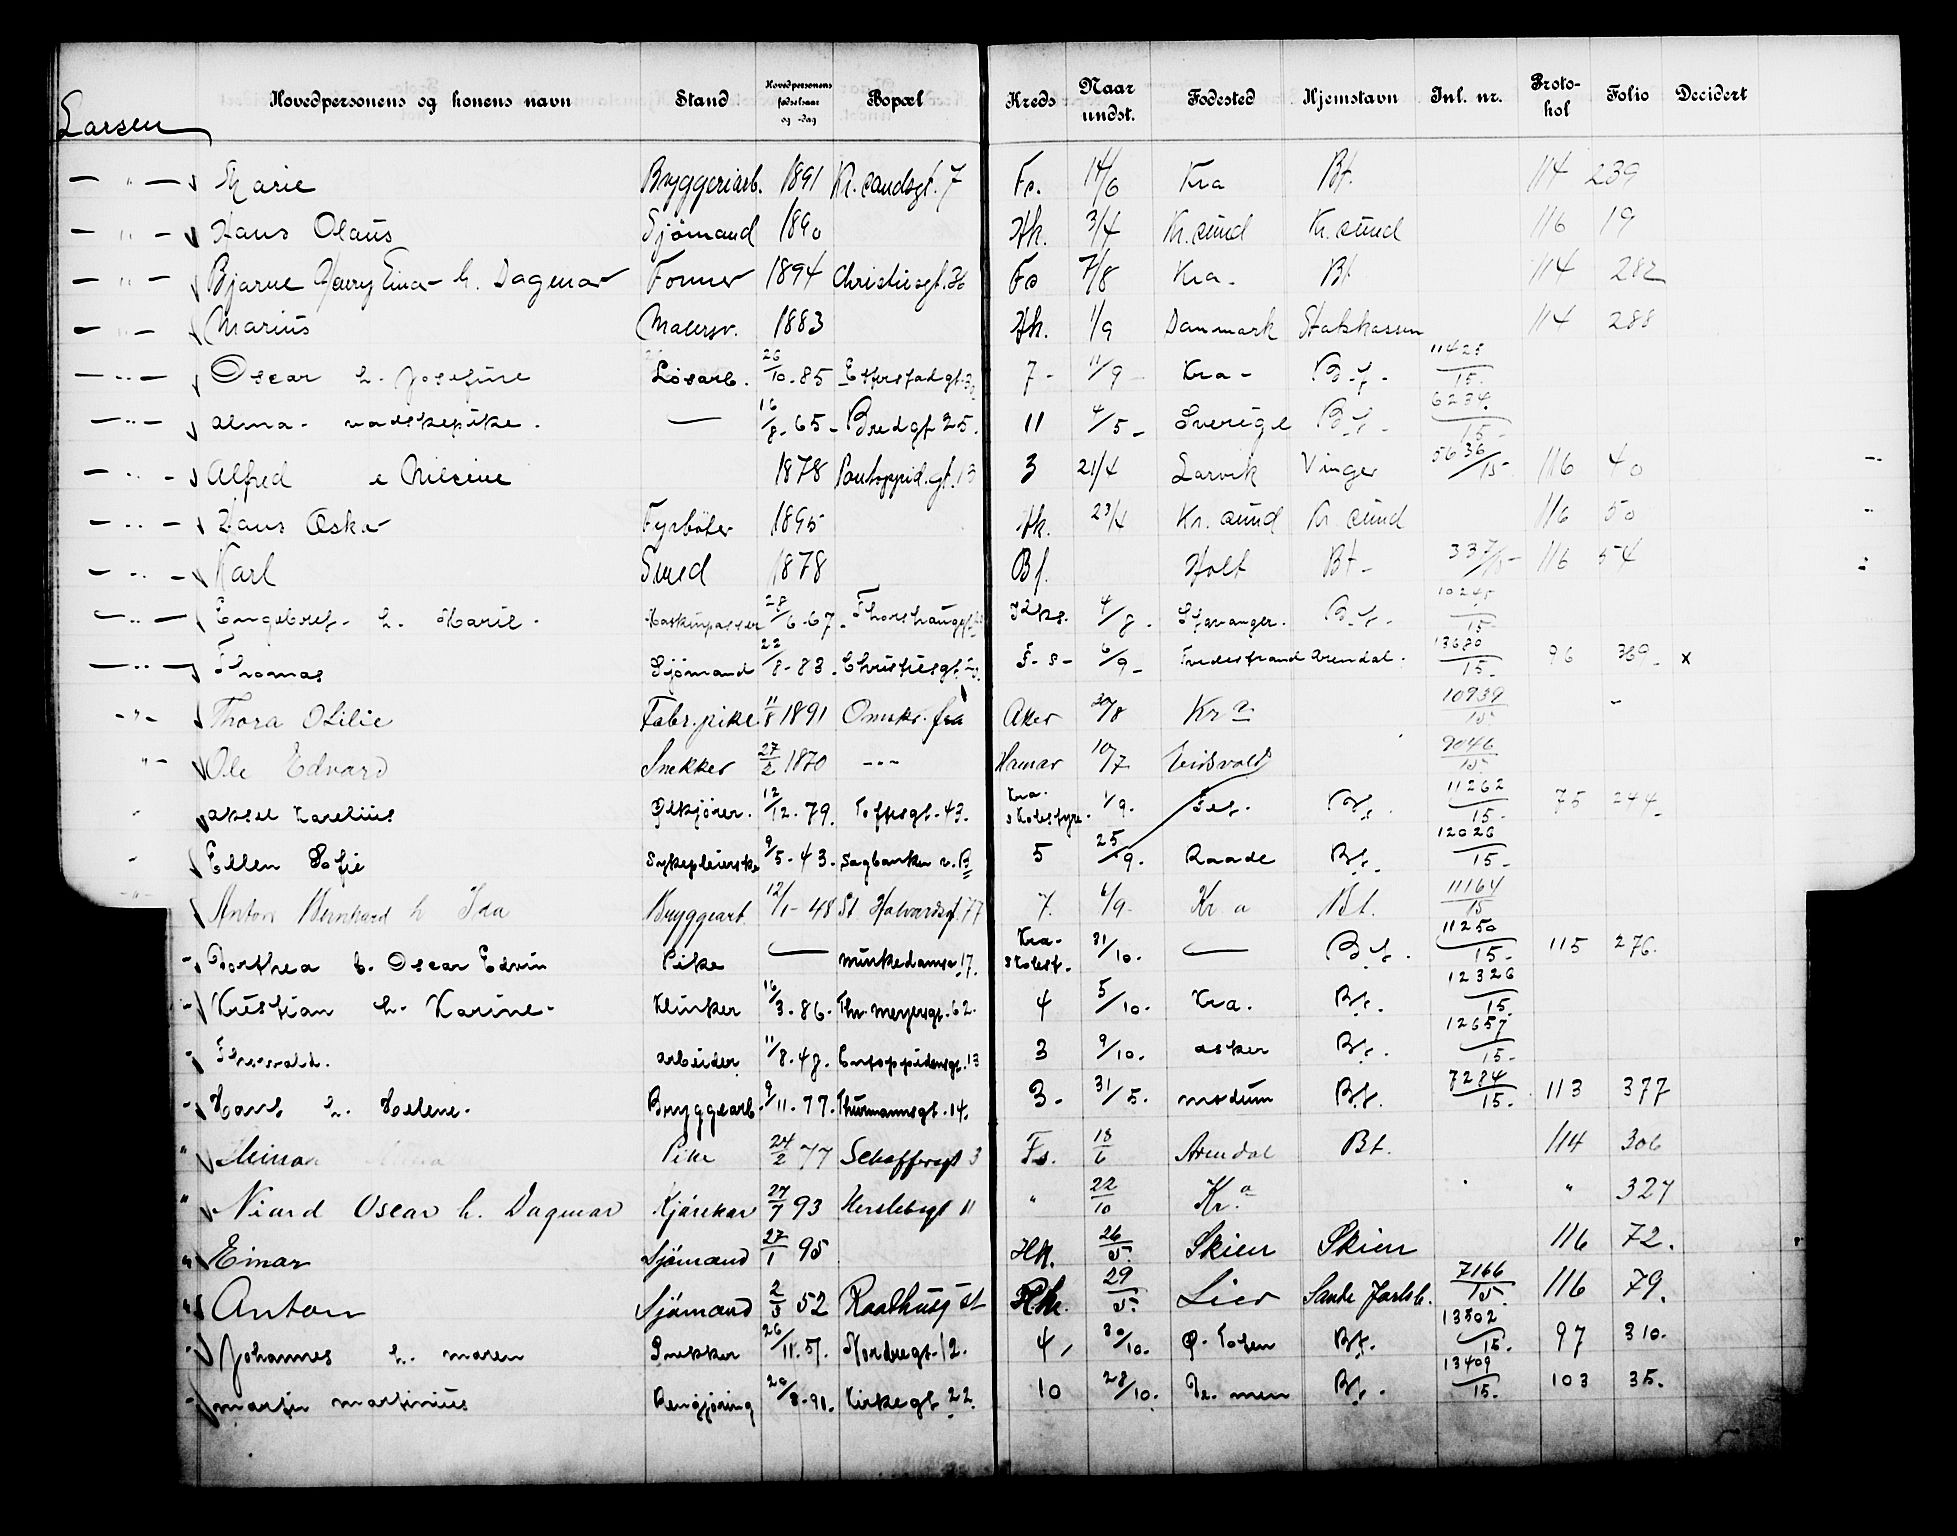 Hovedpersonens og konens navn Stand Hovedpersonens fødselsaar og -dag Bopæl Kreds Naar undst. Fødested Hjemstavn Inl. nr. Protokol Folio Decidert
Larsen
— " — Marie Bryggeriarb. 1891 Kr.sandsgt. 7 Fs. 14/6 Kra Bt. 114 239
— " — Hans Olaus Sjømand 1890 Hk. 3/4 Kr.sund Kr.sund 116 19
— " — Bjarne Harry Einar h. Dagmar Former 1894 Christiesgt. Fs 7/8 Kra. Bt 114 282
— " — Marius Malersv. 1883 Hk. 1/9 Danmark Statskassen 114 288
— " — Oscar h. Josefine Løsarb. 26/10-85 7- 11/9 Kra- B.t- 11425/15-
— " — Alma- vadskepike. — 16/8-65- Bredgt 25. 11 4/5- Sverige B.t- 6234/15-
— " — Alfred e Nilsine 1878 Pontoppid.gt. 13 3 21/4 Larvik Vinger 5636/15- 116 40
— " — Hans Oskar Fyrbøter 1895 Hk. 23/4 Kr.sund Kr.sund 116 50
— " — Karl Smed 1878 Bf. Holt Bt- 337/15- 116 54
— " — Engebret- h. Marie- Maskinpasser 28/6-67- Thorshaugsgt. 4/8. Stavanger. B.t. 10245/15-
— " — Thomas Sjømand 22/8-83. Christiesgt. F-s- 6/9- Tvedestrand Arendal. 13680/15- 96 369- x
- " - Thora Otilie Fabr.pike 11/8 1891 Omskr. fra Aker 30/8 Kra 10939/15
" - Ole Edvard Snekker 27/2 1870 - " - Hamar 10/7 Eidsvold 9046/15-
" Aksel Karelius Ølkjører. 12/12-79. Toftesgt-43. Kra. skolestyre. 1/9. B.t. 11262/15- 75 244-
" Ellen Sofie Sykepleierske 9/5-43. Sagbanken 5 25/9. Raade B.t. 12026/15-
- " - Anton Bernhard h Ida Bryggearb. 12/1-48 St. Halvardsgt. 77 7. 6/9- Kr.a Bt. 11164/15
- Dorthea b. Oscar Edvin Pike — Munkedamsv. 17. Kra- skolest. 31/10. — B.t. 11250/15- 115 276.
- Kristian h- Karine- Klinker 16/3-86- Thv. Meyersgt-62. 4 5/10- Kra. B.t. 12326/15.
- Thorvald. Arbeider 11/8-48. Pontoppidansgt. 13 3 9/10. Asker B.t. 12657/15-
- Hans h. Helene- Bryggearb- 9/11-77- Thurmannsgt-14. 3- 31/5. Modum B.t. 7284/15- 113 377
" Mina Pike 24/2 77 Schaffersgt 3 Fs. 18/6 Arendal Bt. 114 306
" Niard Oscar h. Dagmar Kjørekar 27/7 93 Herslebsgt 11 " 22/10 Kr.a " 327
" Einar Sjømand 27/1 95 Hk. 26/5. Skien Skien 116 72.
" Anton Sjømand 2/3 52 Raadhusgt Hk. 29/5. Lier Sande Jarlsb. 7166/15. 116 79.
" Johannes h. Maren Snekker 26/11.51. Nordregt-12. 4, 30/10. Ø. Toten B.t. 13302/15. 97 310.
- Martin Martinius Rengjøring 20/8-91. Kirkegt 22. 10 28/10. B.t. 13409/15. 103 35.